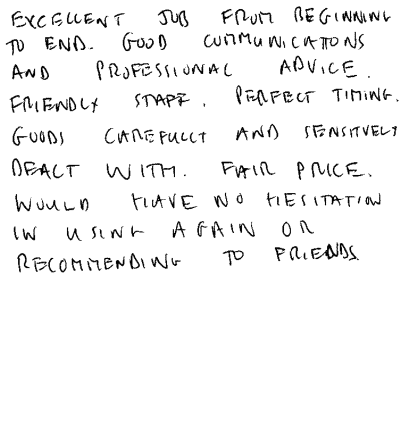 EXCELLENT JOB FROM BEGINNING
TO END. GOOD COMMUNICATIONS
AND PROFESSIONAL ADVICE.
FRIENDLY STAFF. PERFECT TIMING.
GOODS CAREFULLY AND SENSITVELY
DEALT WITH. FAIR PRICE.
WOULD HAVE NO HESITATION
IN USING AGAIN OR
RECOMMENDING TO FRIENDS.